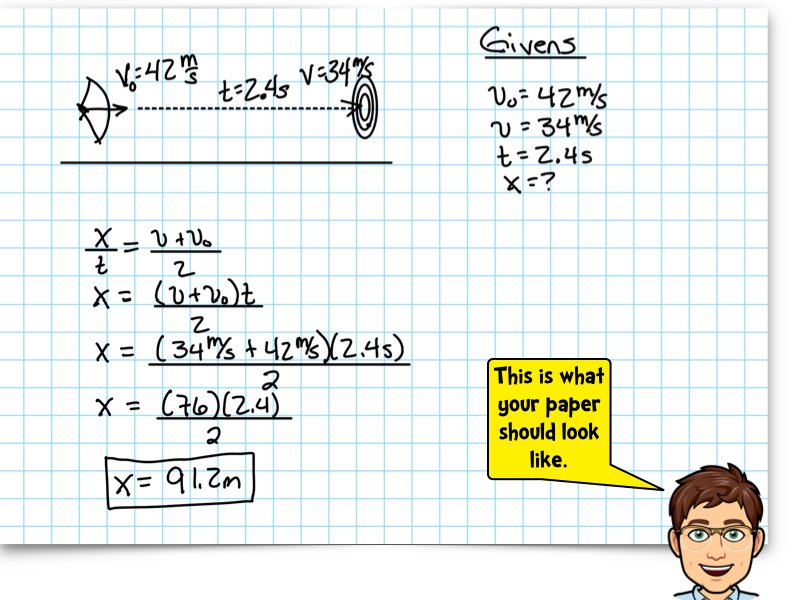 v₀=42 m/s
t=2.4s
v=34 m/s
Givens
v₀ = 42 m/s
v = 34 m/s
t = 2.4s
x = ?
x/t = (v + v₀)/2
x = (v+v₀)t/2
x = (34 m/s + 42 m/s)(2.4s)/2
x = (76)(2.4)/2
x = 91.2m
This is what
your paper
should look
like.